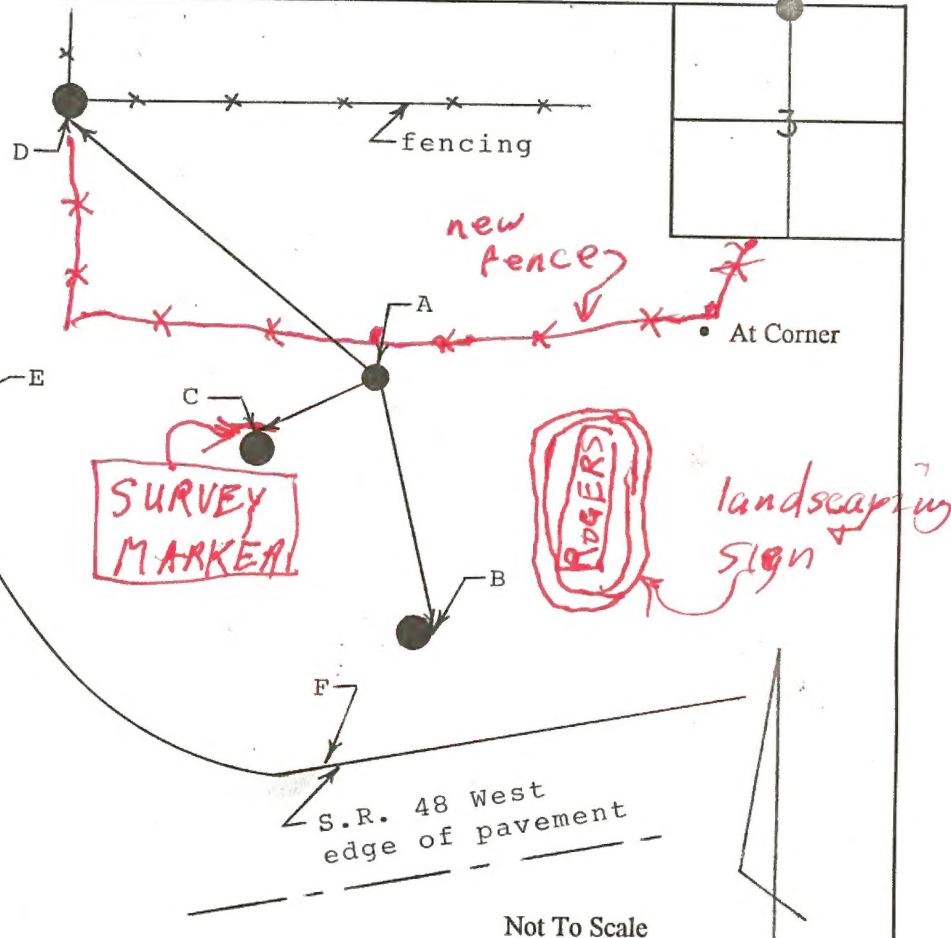 3
D
fencing
new
fence
A
At Corner
E
C
SURVEY
MARKER
ROGERS
landscaping
sign
B
F
S.R. 48 West
edge of pavement
Not To Scale